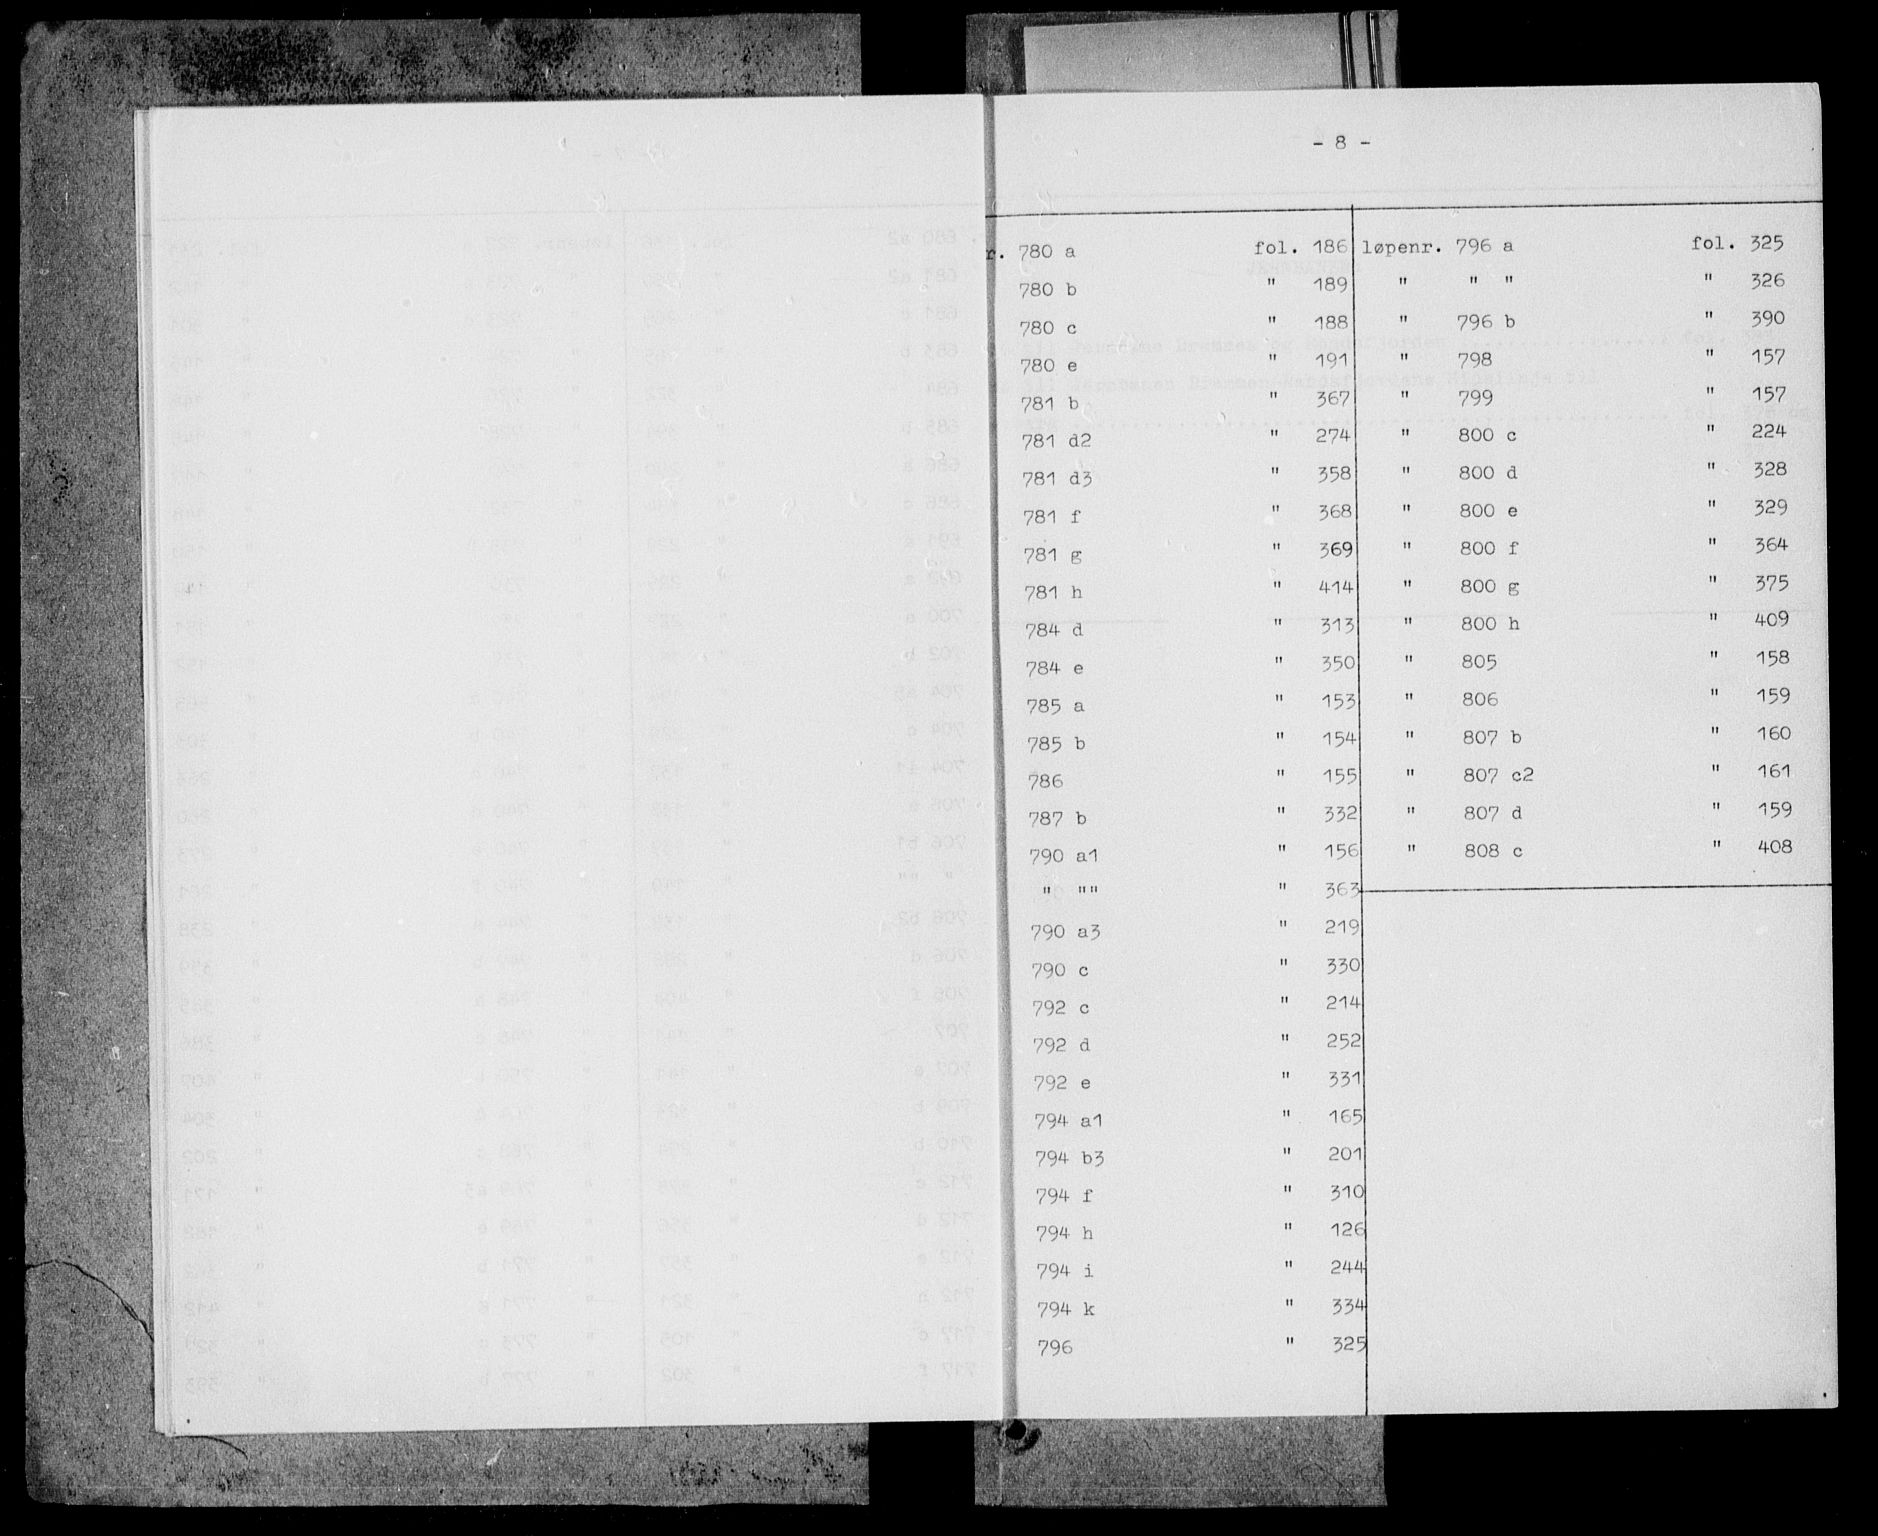 - 8 -
r. 780 a fol. 186 løpenr. 796 a fol. 325
780 b " 189 " " " " 326
780 c " 188 " 796 b " 390
780 e " 191 " 798 " 157
781 b " 367 " 799 " 157
781 d2 " 274 " 800 c " 224
781 d3 " 358 " 800 d " 328
781 f " 368 " 800 e " 329
781 g " 369 " 800 f " 364
781 h " 414 " 800 g " 375
784 d " 313 " 800 h " 409
784 e " 350 " 805 " 158
785 a " 153 " 806 " 159
785 b " 154 " 807 b " 160
786 " 155 " 807 c2 " 161
787 b " 332 " 807 d " 159
790 a1 " 156 " 808 c " 408
" "" " 363
790 a3 " 219
790 c " 330
792 c " 214
792 d " 252
792 e " 331
794 a1 " 165
794 b3 " 201
794 f " 310
794 h " 126
794 i " 244
794 k " 334
796 " 325